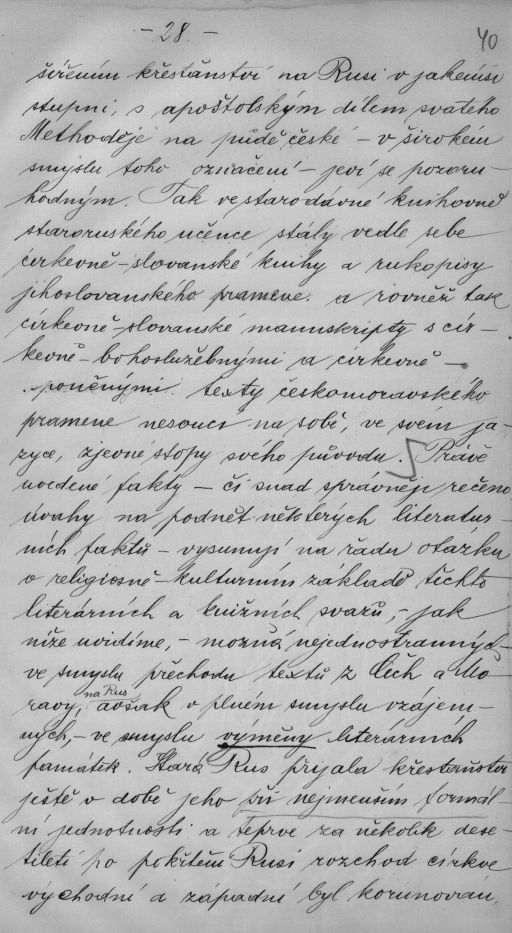 - 28 -
40
šířením křesťanství na Rusi v jakémsi
stupni, s apoštolským dílem svatého
Methoděje na půdě české – v širokém
smyslu toho označení – jeví se pozoru-
hodným. Tak ve starodávné knihovně
staroruského učence stály vedle sebe
církevně-slovanské knihy a rukopisy
jihoslovanského pramene. a rovněž tak
církevně-slovanské manuskripty s cír-
kevně-bohoslužebnými a církevně –
poučnými texty českomoravského
pramene nesoucí na sobě, ve svém ja-
zyce, zjevné stopy svého původu. Právě
uvedené fakty – či snad správněji řečeno
úvahy na podnět některých literatur-
ních faktů – vysunují na řadu otázku
o religiosně-kulturním základě těchto
literárních a knižních svazů, – jak
níže uvidíme, – možná nejednostranných –
ve smyslu přechodu textů z Čech a Mo-
na Rus
ravy, avšak v plném smyslu vzájem-
ných, – ve smyslu výměny literárních
památek. Stará Rus přijala křesťanství
ještě v době jeho při nejmenším formál-
ní jednotnosti a teprve za několik dese-
tiletí po pokřtění Rusi rozchod církve
východní a západní byl korunován,